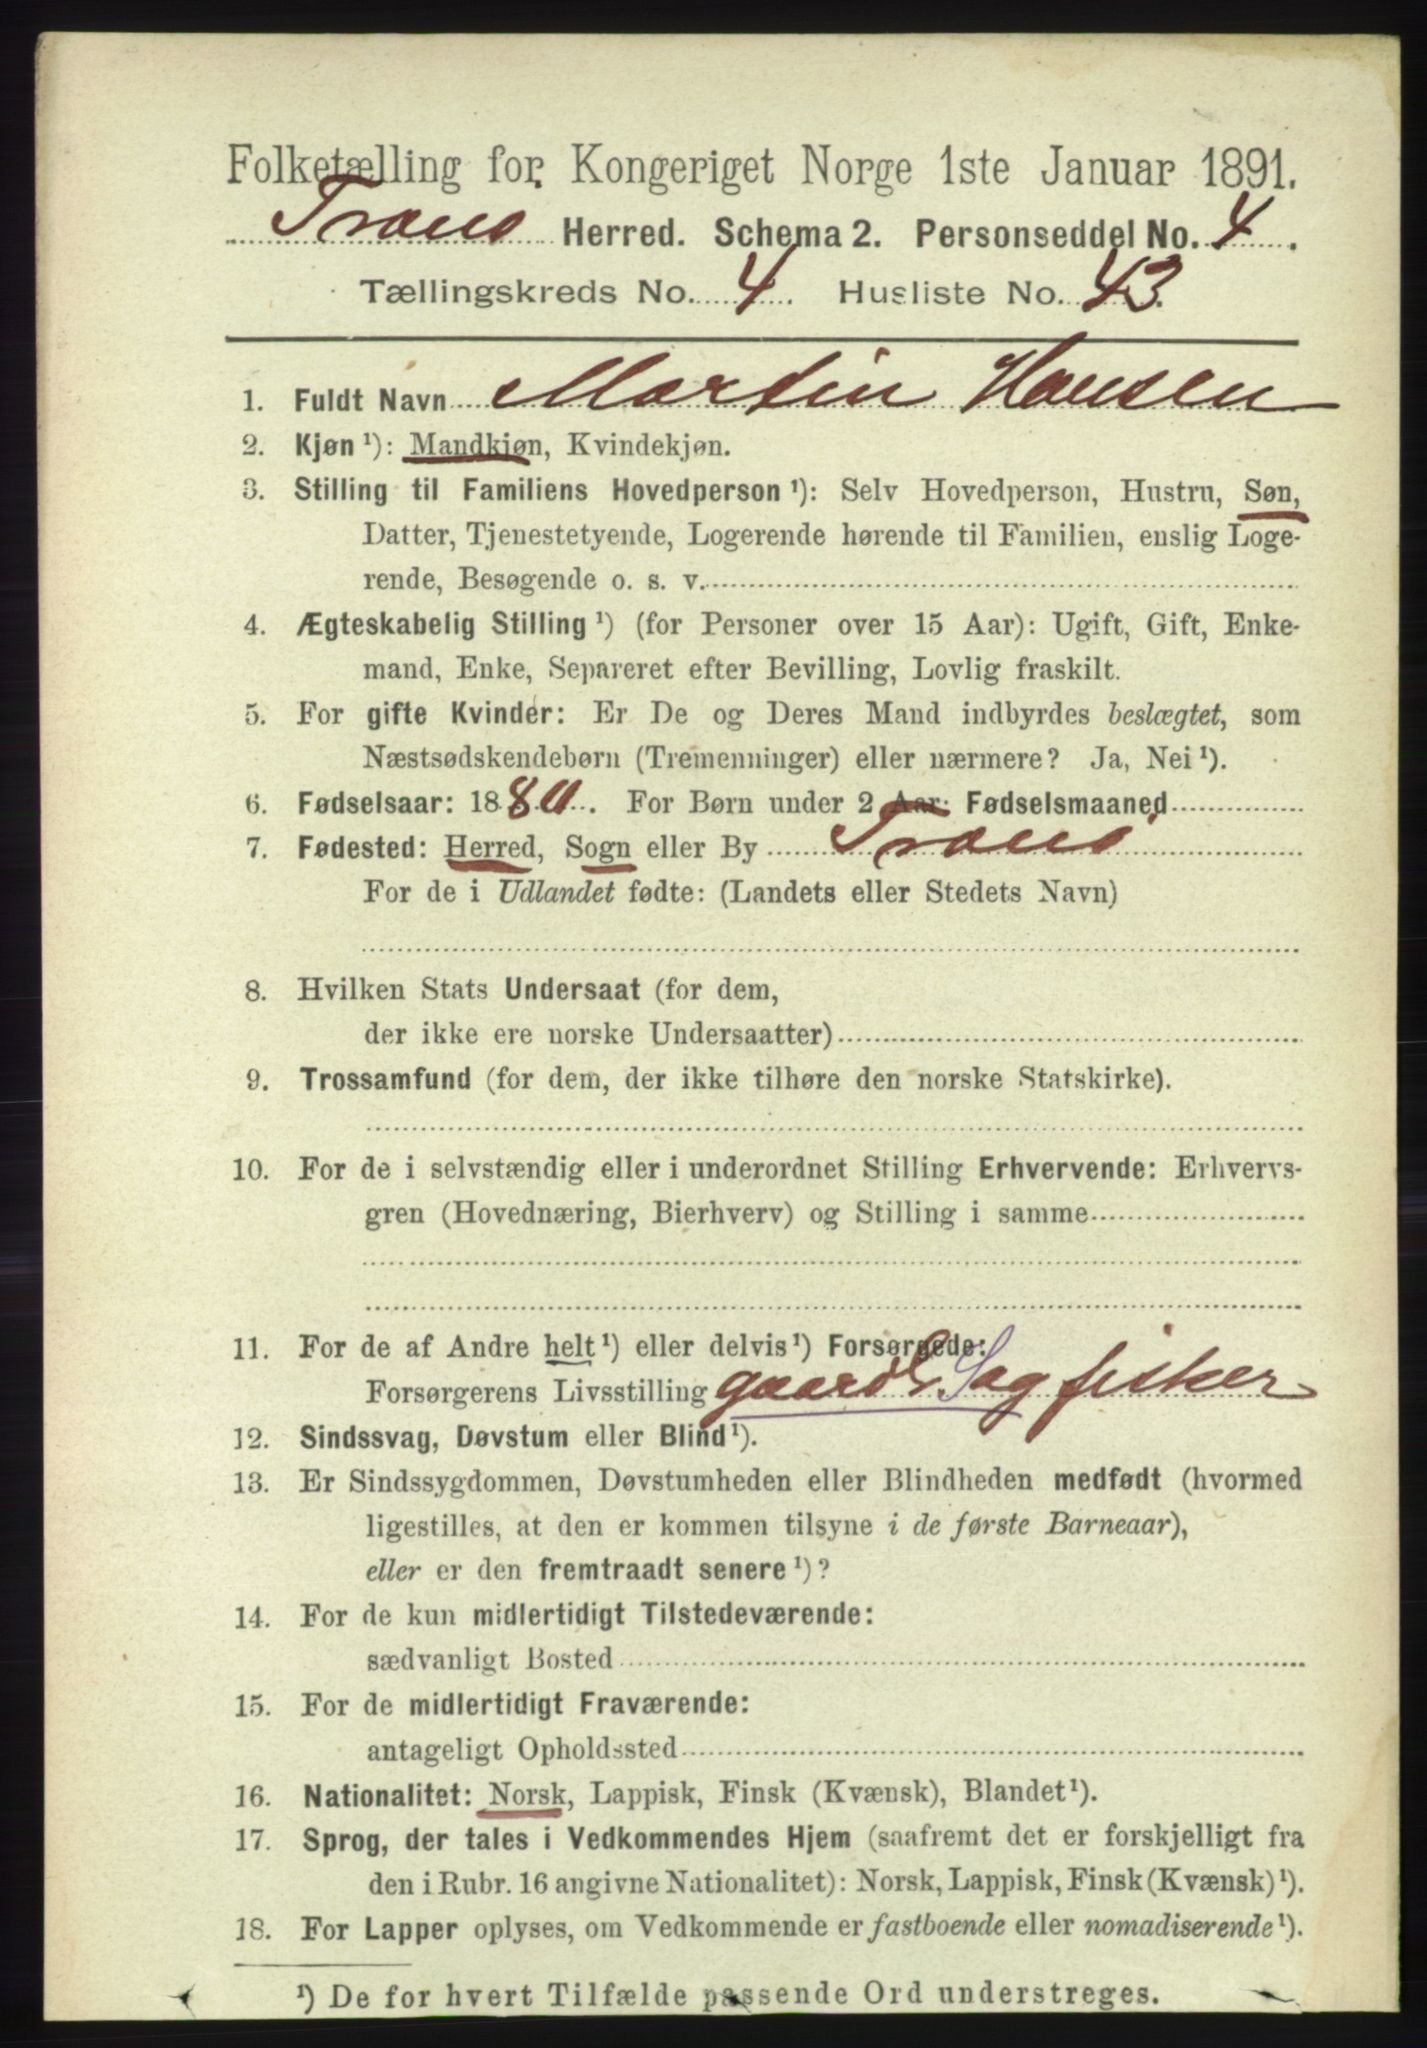 Folketælling for Kongeriget Norge 1ste Januar 1891.
Tranø Herred. Schema 2. Personseddel No. 4.
Tællingskreds No. 4. Husliste No. 43.
1. Fuldt Navn Martin Hansen
2. Kjøn ¹): Mandkjøn, Kvindekjøn.
3. Stilling til Familiens Hovedperson ¹): Selv Hovedperson, Hustru, Søn,
Datter, Tjenestetyende, Logerende hørende til Familien, enslig Loge-
rende, Besøgende o. s. v.
4. Ægteskabelig Stilling ¹) (for Personer over 15 Aar): Ugift, Gift, Enke-
mand, Enke, Separeret efter Bevilling, Lovlig fraskilt.
5. For gifte Kvinder: Er De og Deres Mand indbyrdes beslægtet, som
Næstsødskendebørn (Tremenninger) eller nærmere? Ja, Nei ¹).
6. Fødselsaar: 1880. For Børn under 2 Aar: Fødselsmaaned
7. Fødested: Herred, Sogn eller By Tranø
For de i Udlandet fødte: (Landets eller Stedets Navn)
8. Hvilken Stats Undersaat (for dem,
der ikke ere norske Undersaatter)
9. Trossamfund (for dem, der ikke tilhøre den norske Statskirke).
10. For de i selvstændig eller i underordnet Stilling Erhvervende: Erhvervs-
gren (Hovednæring, Bierhverv) og Stilling i samme
11. For de af Andre helt ¹) eller delvis ¹) Forsørgede:
Forsørgerens Livsstilling fisker
12. Sindssvag, Døvstum eller Blind ¹).
13. Er Sindssygdommen, Døvstumheden eller Blindheden medfødt (hvormed
ligestilles, at den er kommen tilsyne i de første Barneaar),
eller er den fremtraadt senere ¹)?
14. For de kun midlertidigt Tilstedeværende:
sædvanligt Bosted
15. For de midlertidigt Fraværende:
antageligt Opholdssted
16. Nationalitet: Norsk, Lappisk, Finsk (Kvænsk), Blandet ¹).
17. Sprog, der tales i Vedkommendes Hjem (saafremt det er forskjelligt fra
den i Rubr. 16 angivne Nationalitet): Norsk, Lappisk, Finsk (Kvænsk) ¹).
18. For Lapper oplyses, om Vedkommende er fastboende eller nomadiserende ¹).
¹) De for hvert Tilfælde passende Ord understreges.